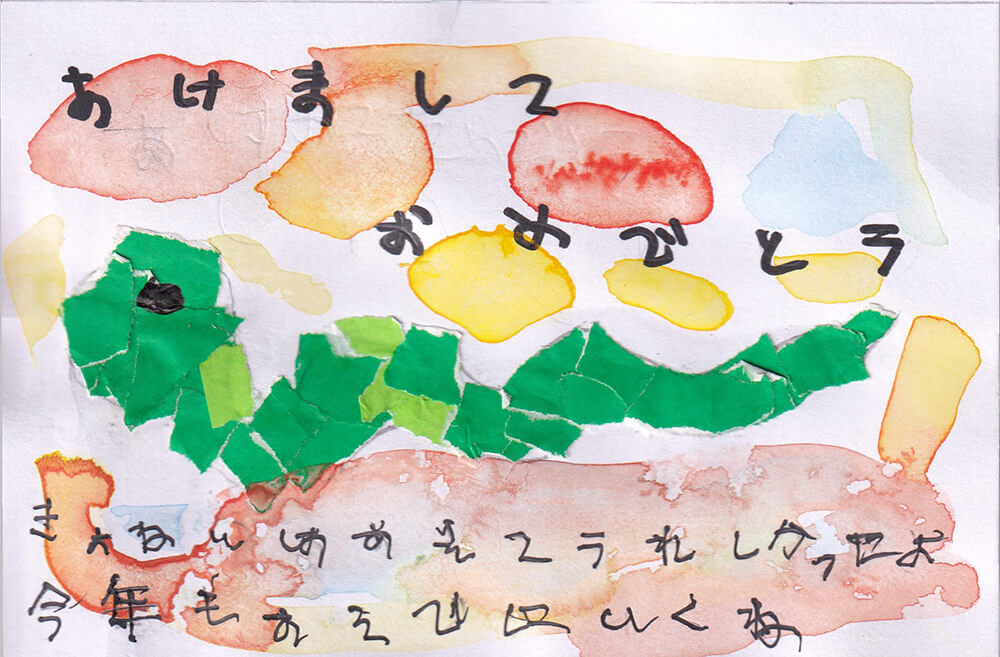 あけまして
おめでとう
きょねんはあえてうれしかったよ
今年もあそびにいくね